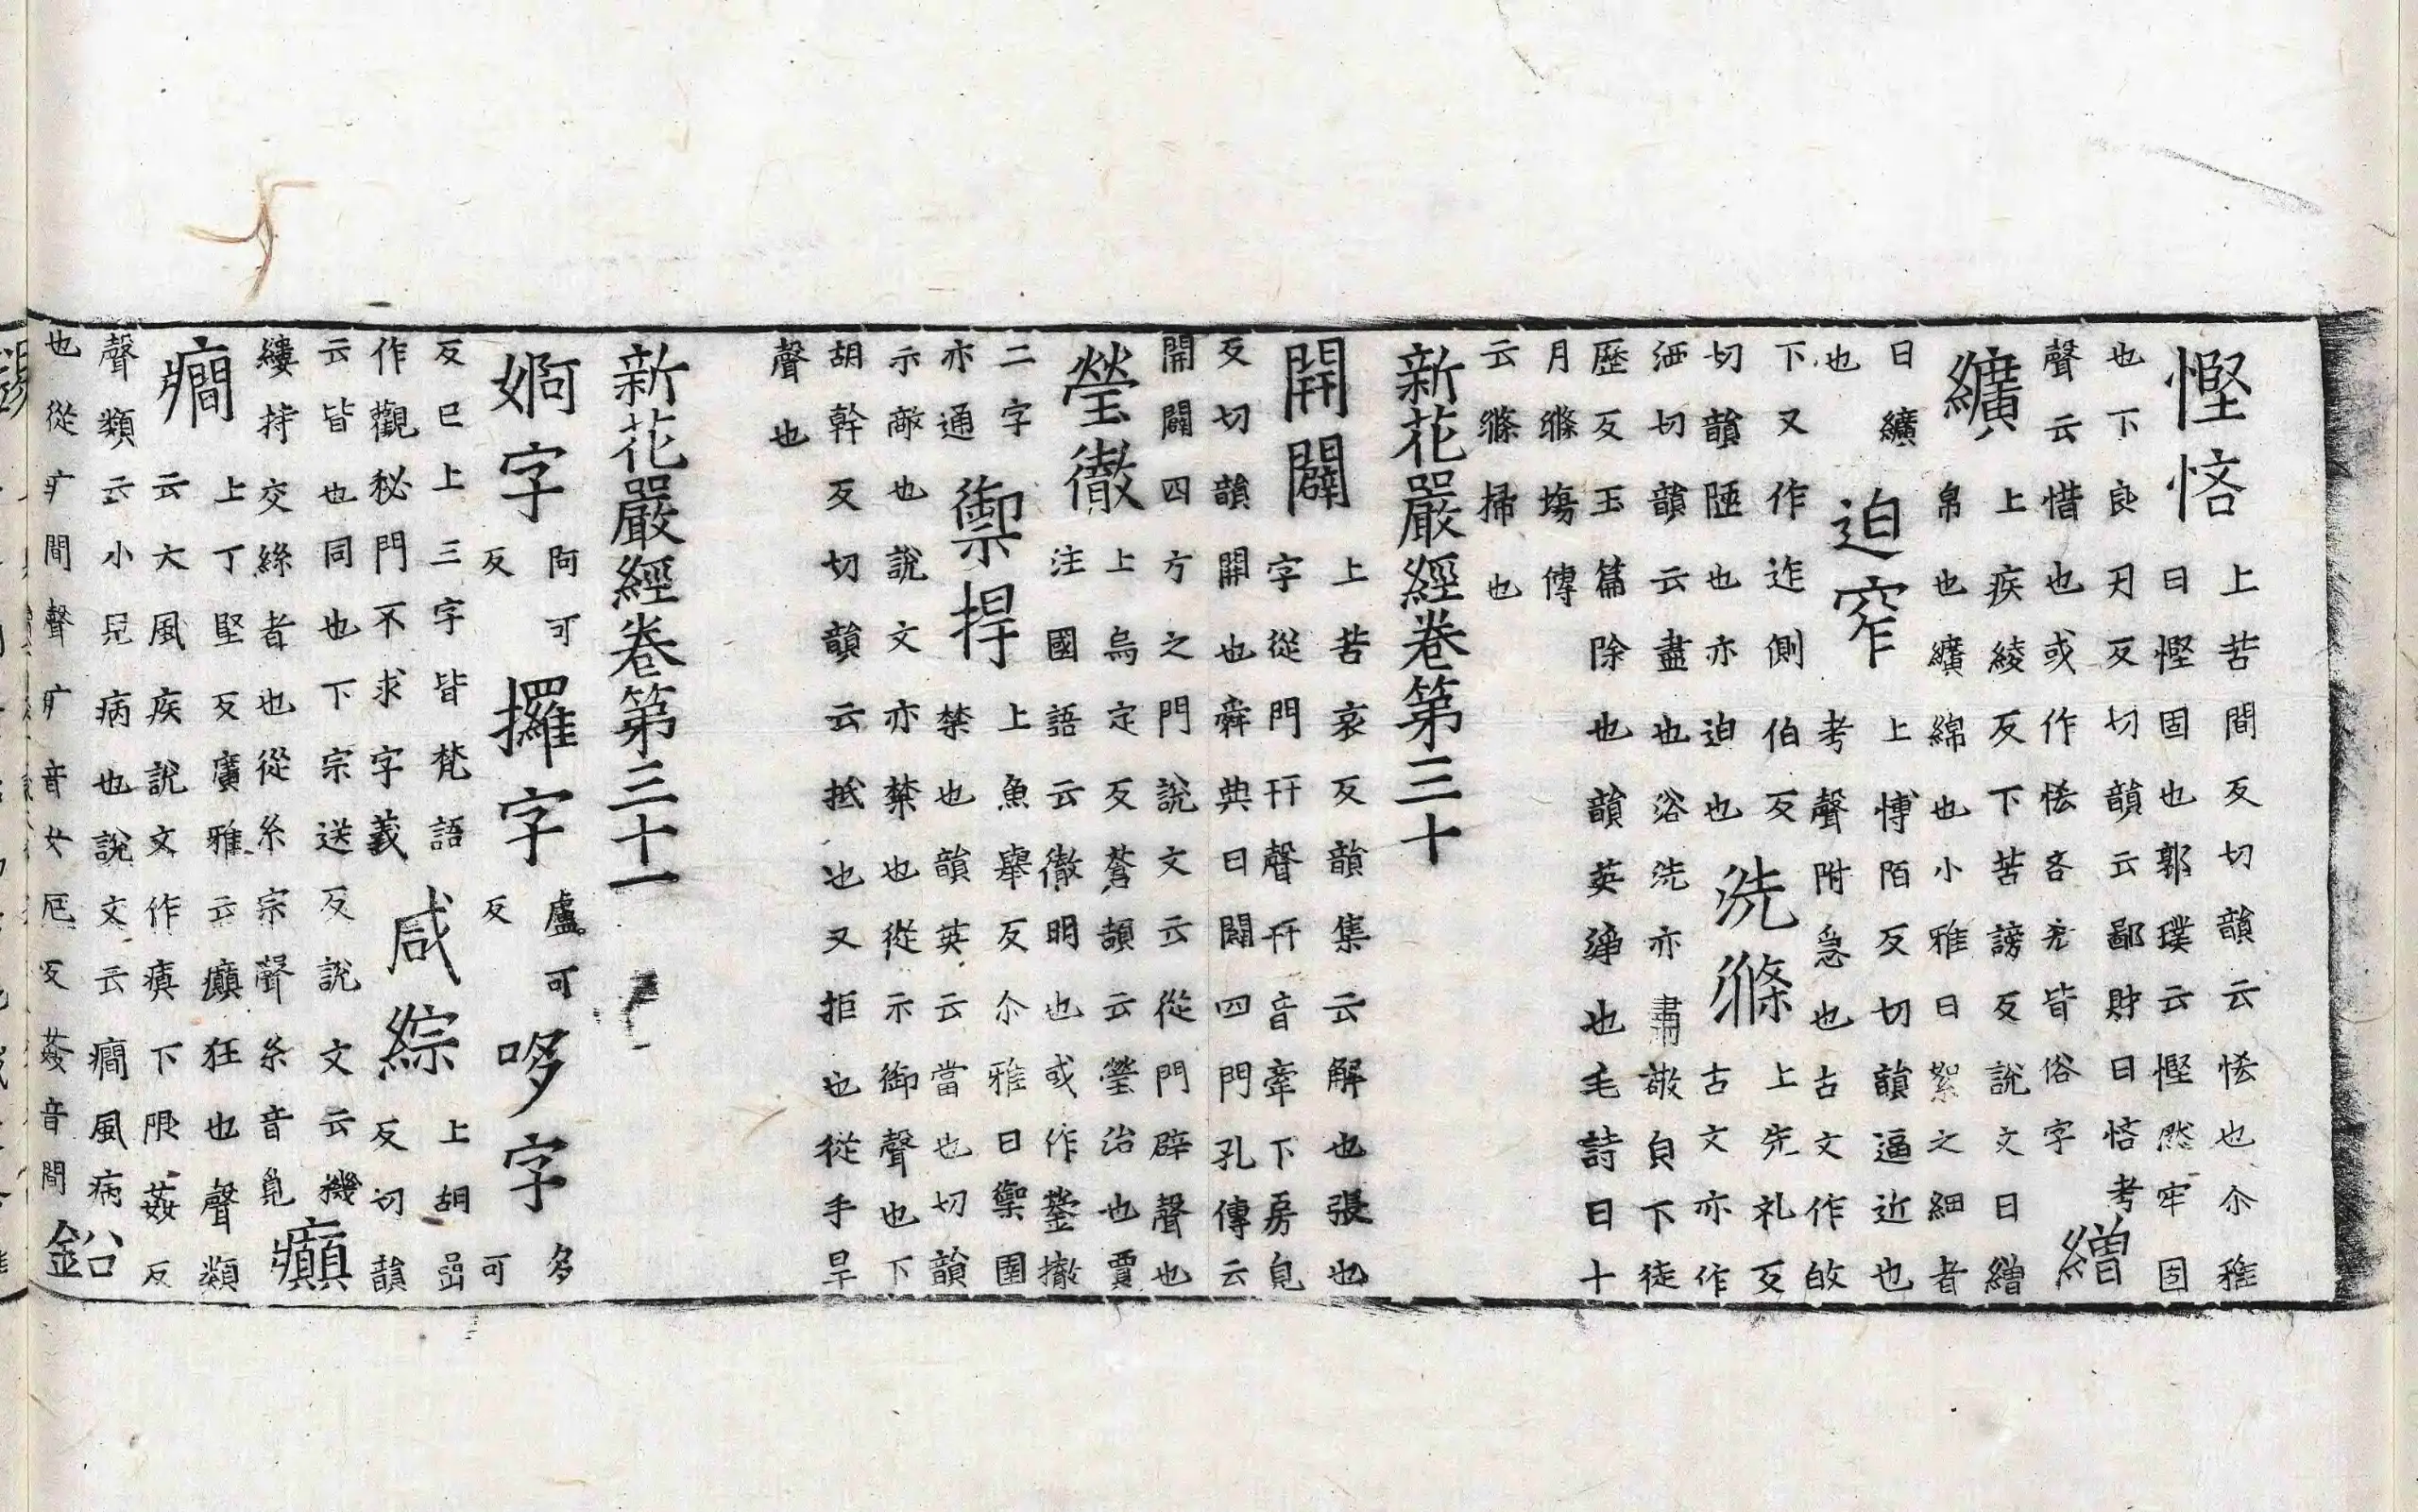 慳悋
上苦間反切韻云恡也尒雅
曰慳固也郭璞云慳然牢固
也下良刃反切韻云鄙財曰悋考
聲云惜也或作恡吝㐫皆俗字
繒
纊
上疾綾反下苦謗反說文曰繒
帛也纊綿也小雅曰絮之細者
曰纊
也
迫窄
上博陌反切韻逼近也
考聲附急也古文作敀
下又作迮側伯反
切韻陿也亦迫也
洗滌
上先礼反
古文亦作
洒切韻云盡也浴洗亦肅敬皃下徒
歷反玉篇除也韻英淨也毛詩曰十
月滌場傳
云滌掃也
新花嚴經卷第三十
開闢
上苦哀反韻集云解也張也
字從門幵聲幵音牽下房覓
反切韻開也舜典曰闢四門孔傳云
開闢四方之門說文云從門辟聲也
瑩徹
上烏定反蒼頡云瑩治也賈
注國語云徹明也或作鎣撤
二字
亦通
禦捍
上魚舉反尒雅曰禦圉
禁也韻英云當也切韻
示敵也說文亦禁也從示御聲也下
胡幹反切韻云抵也又拒也從手旱
聲也
新花嚴經卷第三十一
婀字
阿可
反
攞字
盧可
反
哆字
多
可
反巳上三字皆梵語
作觀秘門不求字義
咸綜
上胡嵒
反切韻
云皆也同也下宗送反說文云機
縷持交絲者也從糸宗聲糸音覓
癲
癇
上丁堅反廣雅云癲狂也聲類
云大風疾說文作瘨下限姦反
聲類云小兒病也說文云癇風病
也從疒間聲疒音女厄反姦音間
鈆